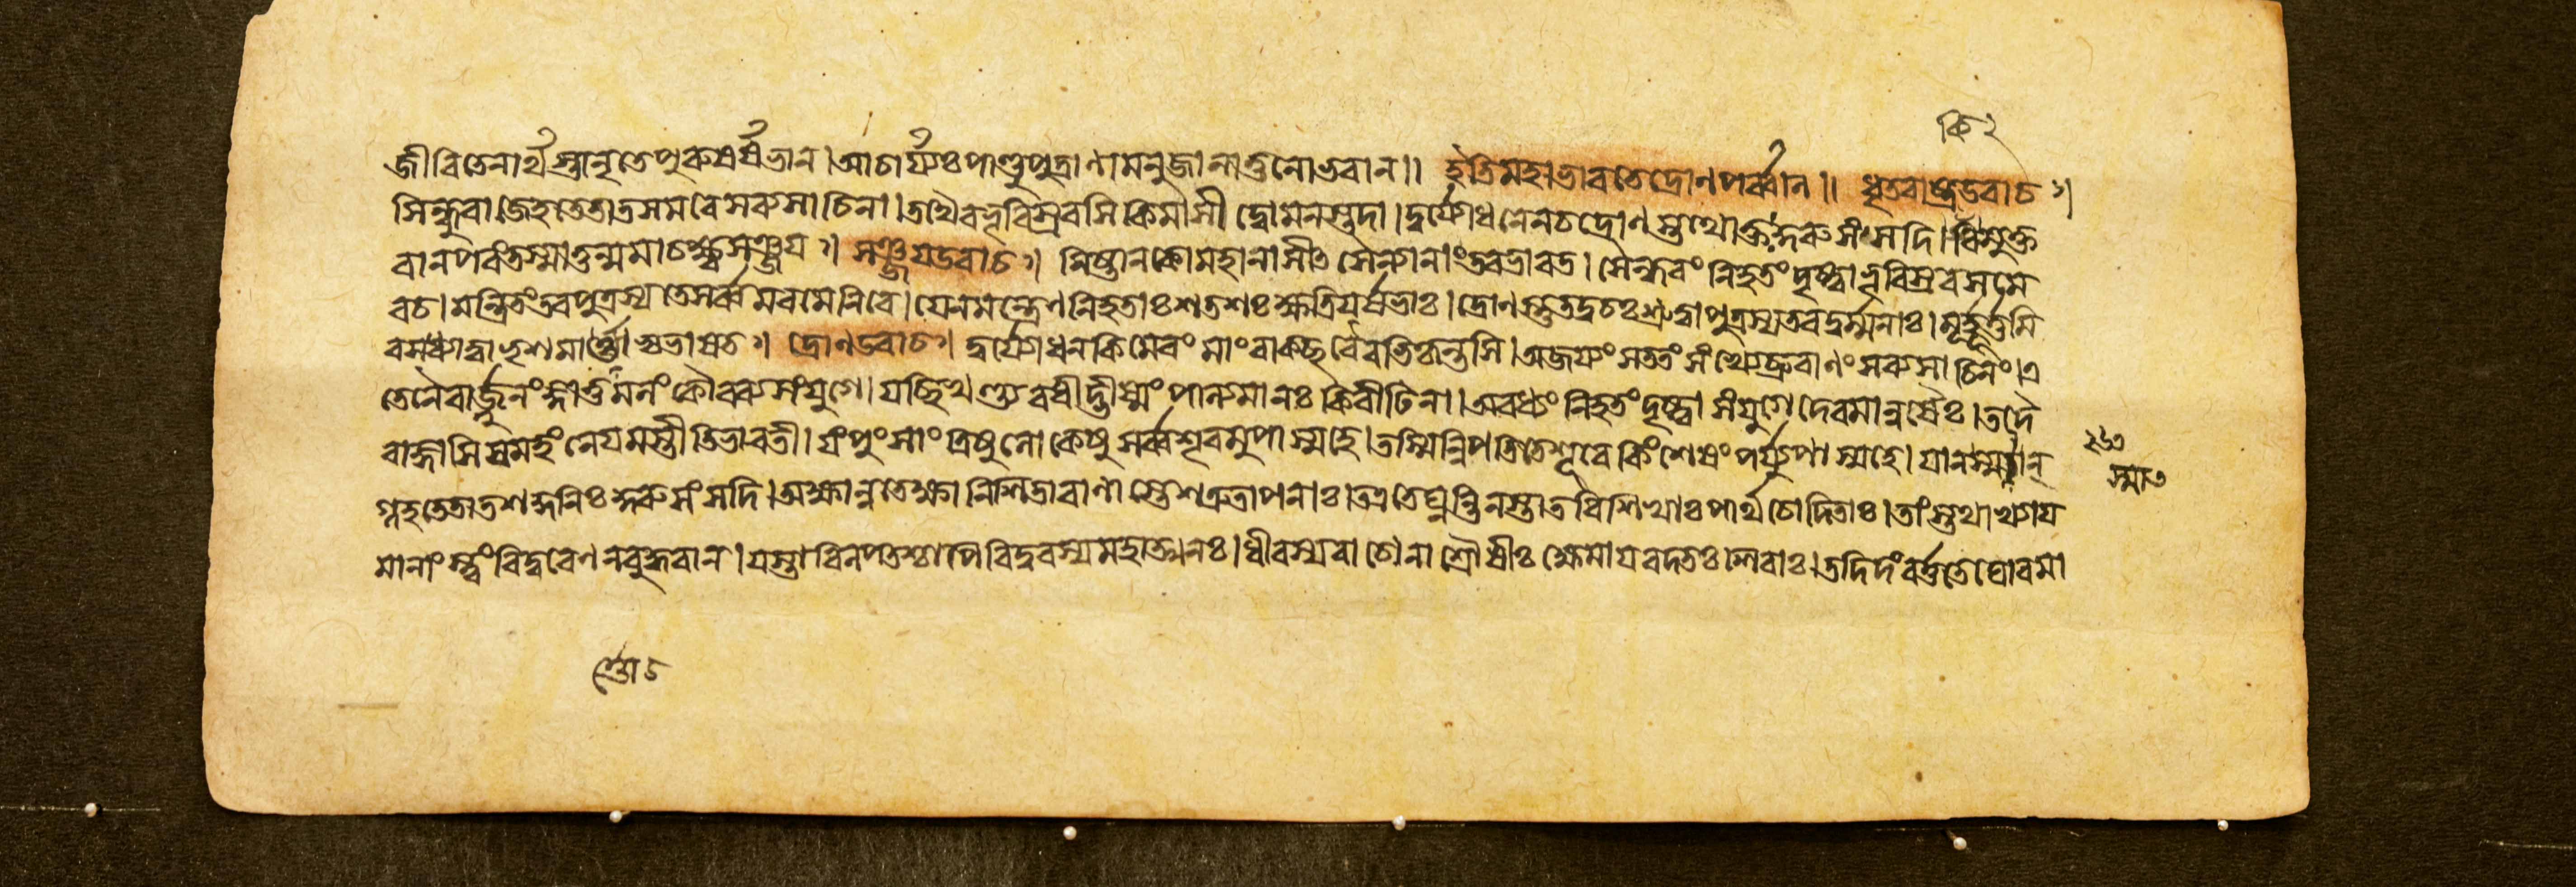 কি ২
জীবিতেনার্থস্তানৃতেপুরুষর্ষভান।আচার্য্যঃপাণ্ডুপুত্রাণামনুজানাতুনোভবান॥ ইতিমহাভারতেদ্রোণপর্ব্বনি॥ ধৃতরাষ্ট্রউবাচ।
সিন্ধুরাজেহতেতাতসমরেসব্যসাচিনা।তথৈবভূরিশ্রবসিকিমাসীদ্বোমনস্তদা।দুর্য্যোধনেনচদ্রোণস্তথোক্তঃকুরুসংসদি।কিমুক্ত
বানপরংতস্মাত্তন্মমাচক্ষ্বসঞ্জয়। সঞ্জয়উবাচ। নিষ্টানকোমহানাসীৎসৈন্যানাংতবভারত।সৈন্ধবংনিহতংদৃষ্ট্বাভূরিশ্রবসমে
বচ।মন্ত্রিতংতবপুত্রস্যতেসর্ব্বমবমেনিরে।যেনমন্ত্রেণনিহতাঃশতশঃক্ষত্রিয়র্ষভাঃ।দ্রোণস্তুতদ্বচঃশ্রুত্বাপুত্রস্যতবদুর্ম্মনাঃ।মুহূর্ত্তমি
বসংধ্যাত্বাভৃশমার্ত্তোভ্যভাষত। দ্রোণউবাচ। দুর্য্যোধনকিমেবংমাংবাক্ছরৈরভিকৃন্তসি।অজয্যংসততংসংখ্যেব্রুবাণংসব্যসাচিনং।এ
তেনৈবার্জ্জুনংজ্ঞাতুমলংকৌরবসংযুগে।যচ্ছিখণ্ড্যবধীদ্ভীষ্মংপাল্যমানঃকিরীটিনা।অবধ্যংনিহতংদৃষ্ট্বাসংযুগেদেবমানুষৈঃ।তদৈ
বাজ্ঞাসিষমহংনেয়মস্তীতিভারতী।যংপুংসাংত্রিষুলোকেষুসর্ব্বশূরমুপাস্মহে।তস্মিন্নিপতিতেশূরেকিংশেষংপর্য্যুপাস্মহে।যানস্মতান্
গ্লহতেতাতশকুনিঃকুরুসংসদি।অক্ষান্নতেক্ষানিশিতাবাণাস্তেশত্রুতাপনাঃ।তএতেঘ্নন্তিনস্তাতবিশিখাঃপার্থচোদিতাঃ।তাংস্তথাখ্যায়
মানাংস্ত্বংবিদুরেণনবুদ্ধবান।যস্তাবিলপতশ্চাপিবিদুরস্যমহাত্মনঃ।ধীরস্যবাচোনাশ্রৌষীঃক্ষেমায়বদতঃশিবাঃ।তদিদংবর্ত্ততেঘোরমা